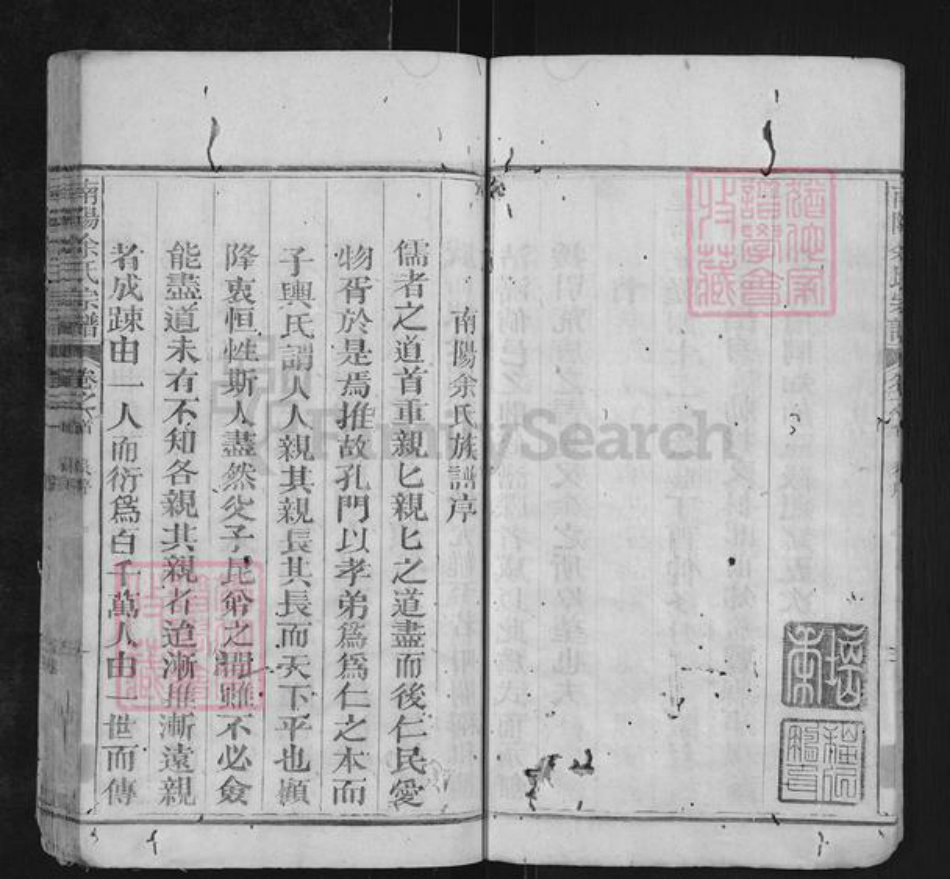 南陽余氏族譜序
儒者之道首重親匕親匕之道盡而後仁民愛
物胥於是焉推故孔門以孝弟爲爲仁之本而
子輿氏謂人人親其親長其長而天下平也顧
降衷恒性斯人盡然父子昆弟之間雖不必僉
能盡道未有不知各親其親者迨漸推漸遠親
者成踈由一人而衍爲百千萬人由一世而傳
南陽余氏宗譜
卷之首
譜學會
收藏
FamilySearch